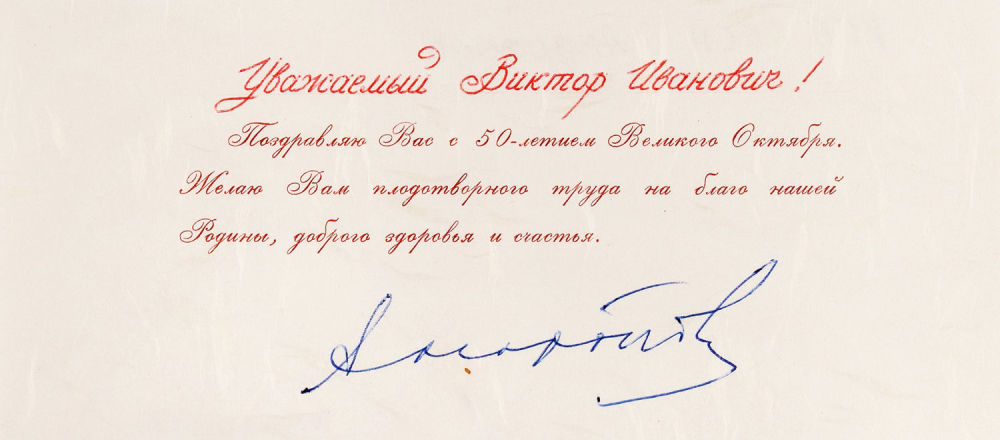 Уважаемый Виктор Иванович!
Поздравляю Вас с 50-летием Великого Октября.
Желаю Вам плодотворного труда на благо нашей
Родины, доброго здоровья и счастья.